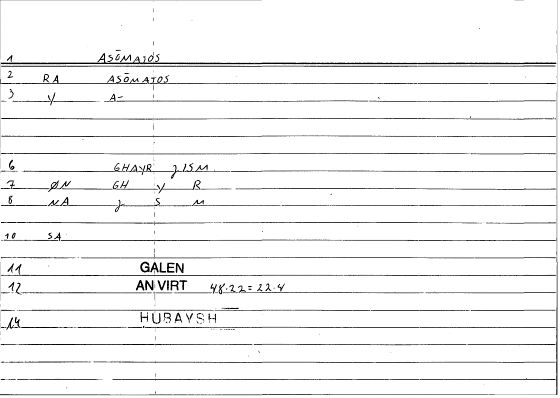 1 ASŌMATOS
2 RA ASŌMATOS
3 Y A-
6 GHAYR JISM
7 ØN GH Y R
8 NA J S M
10 SA
11 GALEN
12 AN VIRT 48.22=22.4
14 HUBAYSH